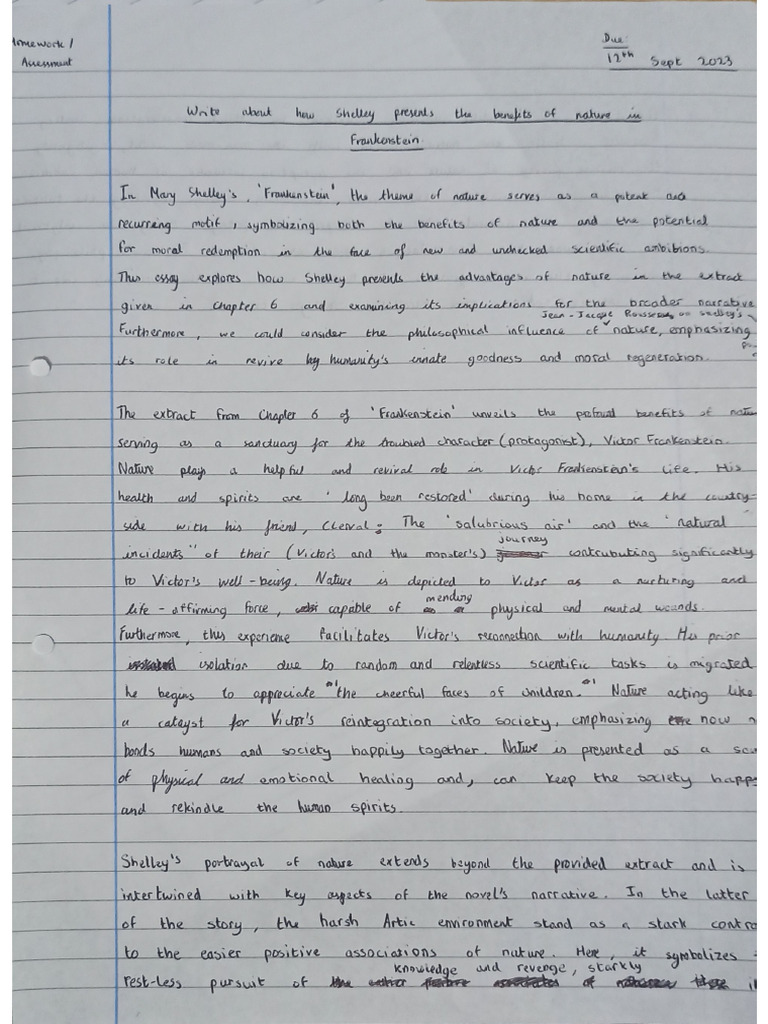 Homework /
Assessment
Due:
12th Sept 2023
Write about how Shelley presents the benefits of nature in
Frankenstein.
In Mary Shelley's, 'Frankenstein', the theme of nature serves as a potent and
recurring motif, symbolizing both the benefits of nature and the potential
for moral redemption in the face of new and unchecked scientific ambitions.
This essay explores how Shelley presents the advantages of nature in the extract
given in Chapter 6 and examining its implications for the broader narrative
Jean-Jacque Rousseau on Shelley's
Furthermore, we could consider the philosophical influence of nature, emphasizing
its role in revive humanity's innate goodness and moral regeneration.
The extract from Chapter 6 of 'Frankenstein' unveils the profound benefits of natu
serving as a sanctuary for the troubled character (protagonist), Victor Frankenstein.
Nature plays a helpful and revival role in Victor Frankienstein's life. His
health and spirits are 'long been restored' during his home in the country-
side with his friend, Clerval; The 'salubrious air' and the 'natural
journey
incidents" of their (Victor's and the monster's) contrubuting significantly
to Victor's well-being. Nature is depicted to Victor as a nurturing and
mending
life-affirming force, capable of physical and mental wounds.
Furthermore, this experience facilitates Victor's reconnection with humanity. His prior
isolation due to random and relentless scientific tasks is migrated
he begins to appreciate "the cheerful faces of children." Nature acting like
a catalyst for Victor's reintegration into society, emphasizing how
bonds humans and society happily together. Nature is presented as a sou
of physical and emotional healing and, can keep the society happ
and rekindle the human spirits.
Shelley's portrayal of nature extends beyond the provided extract and is
intertwined with key aspects of the novel's narrative. In the latter
of the story, the harsh Artic environment stand as a stark contra
to the easier positive associations of nature. Here, it symbolizes
knowledge and revenge, starkly
rest-less pursuit of